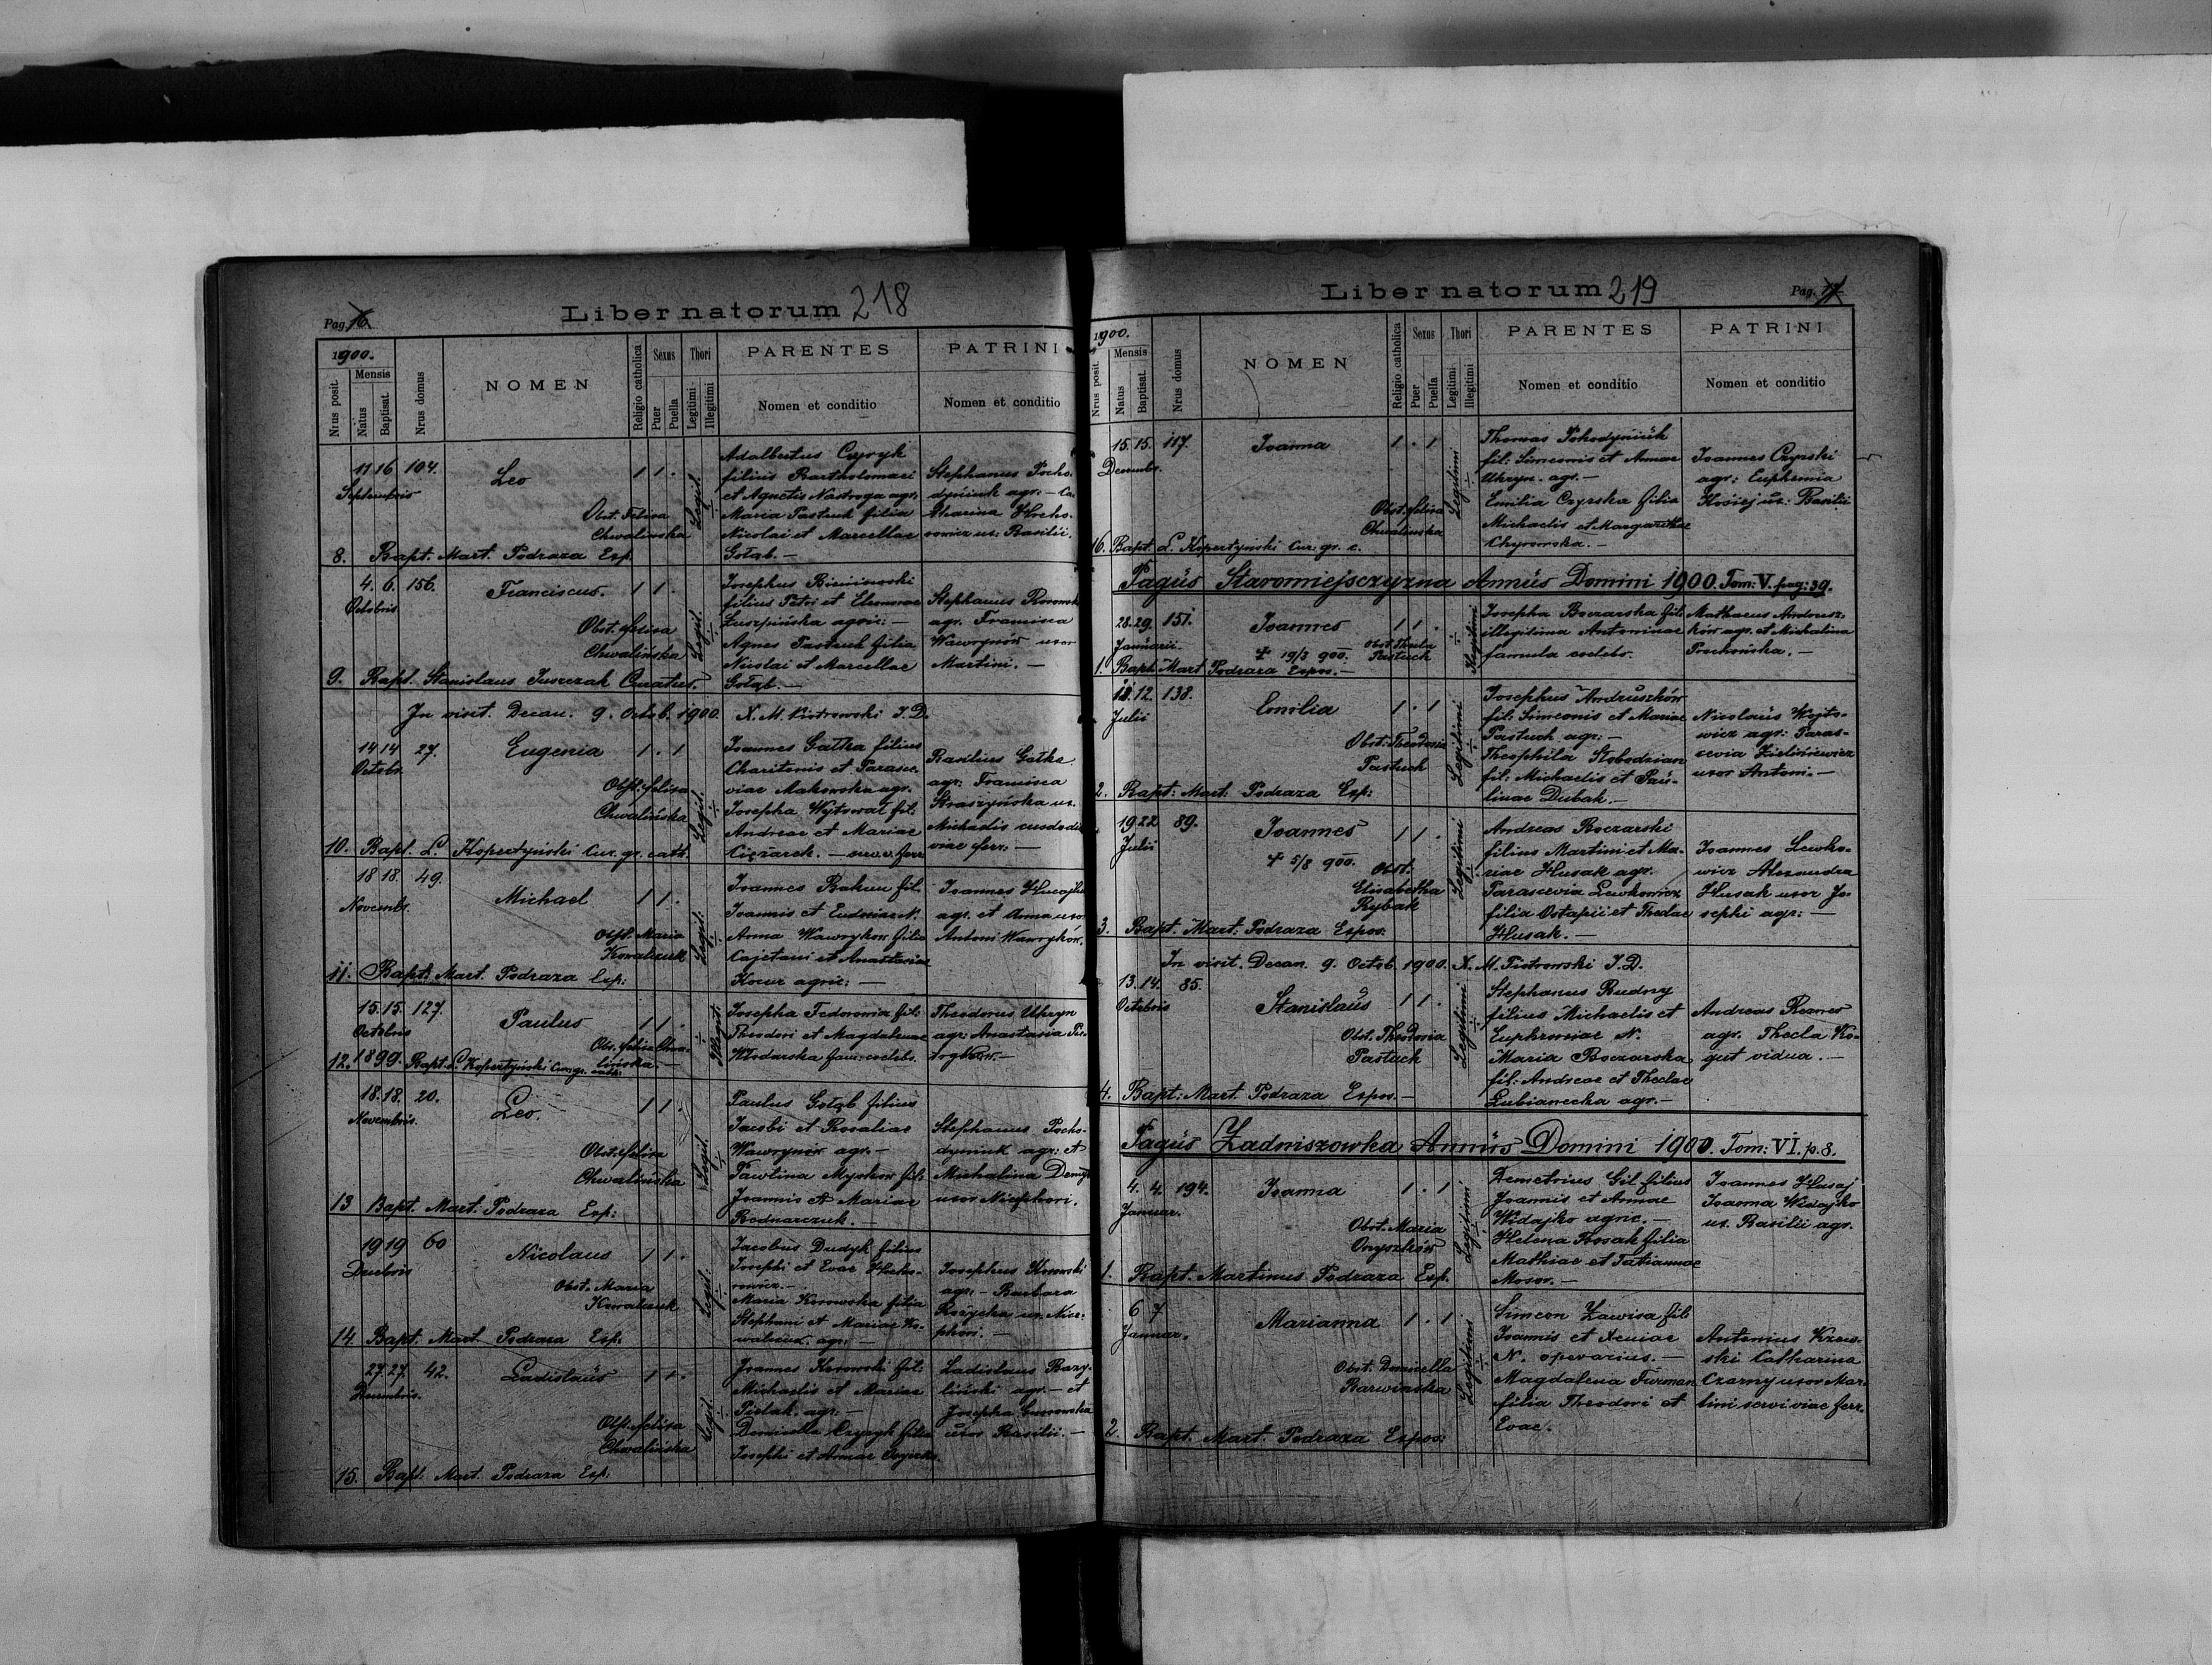 Pag. 16
Liber natorum 218
1900.
Nrus posit.
Mensis
Natus
Baptisat.
Nrus domus
NOMEN
Religio catholica
Sexus
Puer
Puella
Thori
Legitimi
Illegitimi
PARENTES
Nomen et conditio
PATRINI
Nomen et conditio
11 16 104.
Septembris
Leo
1 1 .
Obst. Felixa
Chwalińska
Legit.
Adalbertus Czyryk
filius Bartholomaei
et Agnetis Nastroga agr.
Maria Pastuch filia
Nicolai et Marcellae
Gołąb. —
Stephanus Pocho-
dyniuk agr. — Ca-
tharina Hocho-
rowicz ux. Basilii.
8. Bapt. Mart. Podraza Exp.
4. 6. 156.
Octobris
Franciscus.
1 1 .
Obst. Felixa
Chwalińska
Legit.
Josephus
filius Petri et Eleonorae
agric: —
Agnes Pastuch filia
Nicolai et Marcellae
Gołąb. —
Stephanus
agr. Francisca
Wawrynów uxor
Martini. —
9. Bapt. Stanislaus Juszczak Curatus.
In visit. Decan. 9. Octob. 1900. X. M. Piotrowski J. D.
14 14 27.
Octobr.
Eugenia
1 . 1
Obst. Felixa
Chwalińska
Legit.
Joannes Gatka filius
Charitonis et Parasce-
viae Makowska agr.
Josepha Wojtowal fil.
Andreae et Mariae
Ciężarek. —
Basilius Gatka
agr. Francisca
Straszyńska ux.
Michaelis custodis
viae ferr: —
10. Bapt. L. Kopertyński Cur. gr. cath.
18 18. 49.
Novembr.
Michael
1 1 .
Obst. Maria
Kowalczuk
Legit.
Joannes Bakun fil.
Joannis et Eudoxiae N.
Anna Wawryków filia
Cajetani et Anastasiae
Kocur agric: —
Joannes
agr. et Anna uxor
Antoni Wawryków.
11. Bapt. Mart. Podraza Exp:
15. 15. 127.
Octobris
1899.
Paulus
1 1 .
Obst. Felixa Chwa-
lińska. —
Illegit.
Josepha Fedorowicz fil:
Theodori et Magdalenae
Włodarska fam: coelebs.
Theodorus Uhryn
agr. Anastasia
12. Bapt. L. Kopertyński Cur. gr. cath.
18. 18. 20.
Novembris.
Leo.
1 1 .
Obst. Felixa
Chwalińska
Legit.
Paulus Gołąb filius
Jacobi et Rosaliae
Wawrynów agr. —
Pawlina Myskow fil:
Joannis et Mariae
Bodnarczuk. —
Stephanus Pocho-
dyniuk agr: et
Michalina
uxor Nicephori.
13 Bapt. Mart: Podraza Exp:
19 19 60
Decebris
Nicolaus
1 1 .
Obst. Maria
Kowalczuk
Legit:
Jacobus Dudyk filius
Josephi et Evae Hocho-
rowicz. —
Maria Korowska filia
Stephani et Mariae Ko-
walczuk agr: —
Josephus Korowski
agr: — Barbara
Rożycka ux. Nice-
phori. —
14. Bapt: Mart. Podraza Exp:
27 27. 42.
Decembris.
Ladislaus
1 1 .
Obst. Felixa
Chwalińska
Legit.
Joannes Korowski fil:
Michaelis et Mariae
Pielak agr: —
Domicella Czyryk filia
Josephi et Annae
Ladislaus Bazy-
liński agr. — et
Josepha
uxor Basilii. —
15. Bapt. Mart. Podraza Exp.
Liber natorum 219
Pag. 17
1900.
Nrus posit.
Mensis
Natus
Baptisat.
Nrus domus
NOMEN
Religio catholica
Sexus
Puer
Puella
Thori
Legitimi
Illegitimi
PARENTES
Nomen et conditio
PATRINI
Nomen et conditio
15. 15. 117.
Decembr.
Joanna
1 . 1
Obst. Felixa
Chwalińska
Legitimi
Thomas Pohodyniuk
fil: Simeonis et Annae
Uhryn. agr. —
Emilia Czyrska filia
Michaelis et Margarethae
Chyrowska. —
Joannes Czyrski
agr: Euphemia
ux: Basilii
16. Bapt. L. Kopertyński Cur. gr. c.
Pagus Staromiejszczyzna Annus Domini 1900. Tom: V. pag: 39.
28. 29. 151.
Januarii.
Joannes
1 1 .
+ 19/3 900.
Obst. Thecla
Pastuch
Illegitimi
Josepha Boczarska fil:
illegitima Antoninae
famula coelebs.
Mathaeus Andrusz-
ków agr. et Michalina
Prochońska. —
1. Bapt. Mart Podraza Expos. —
11. 12. 138.
Julii
Emilia
1 . 1
Obst. Theodosia
Pastuch
Legitimi
Josephus Andruszków
fil: Simeonis et Mariae
Pastuch agr: —
Theophila Słobodzian
fil: Michaelis et Pau-
linae Dubak. —
Nicolaus Wojto-
wicz agr: Paras-
cevia Zieliniewicz
uxor Antoni. —
2. Bapt: Mart: Podraza Exp:
19 22 89.
Julii
Joannes
1 1 .
+ 5/8 900.
Obst.
Elisabetha
Rybak
Legitimi
Andreas Boczarski
filius Martini et Ma-
riae Husak agr.
Parascevia Lewkowicz
filia Ostapii et Theclae
Husak. —
Joannes Lewko-
wicz Alexandra
Husak uxor Jo-
sephi agr: —
3. Bapt. Mart: Podraza Expos:
In visit. Decan. 9. Octob. 1900. X. M. Piotrowski J. D.
13. 14. 85.
Octobris
Stanislaus
1 1 .
Obst. Theodosia
Pastuch
Legitimi
Stephanus Budny
filius Michaelis et
Euphrosinae N.
Maria Boczarska
fil: Andreae et Theclae
Lubianecka agr. —
Andreas
agr. Thecla Ko-
gut vidua. —
4. Bapt: Mart. Podraza Expos. —
Pagus Zadniszowka Annus Domini 1900. Tom: VI. p. 8.
4. 4. 194.
Januar.
Joanna
1 . 1
Obst. Maria
Onyszków
Legitimi
Demetrius Gil filius
Joannis et Annae
Widajko agric. —
Helena Bosak filia
Mathiae et Tatiannae
Mosor. —
Joannes Husaj
Joanna Widajko
ux. Basilii agr.
1. Bapt. Martinus Podraza Exp.
6 7
Januar.
Marianna
1 . 1
Obst. Domicella
Barwińska
Legitimi
Simeon Zawisa fil:
Joannis et Xeniae
N. operarius. —
Magdalena Furman
filia Theodori et
Evae.
Antonius Krzew-
ski Catharina
Czarny uxor Mar-
tini servi viae ferr.
2. Bapt. Mart. Podraza Expos: